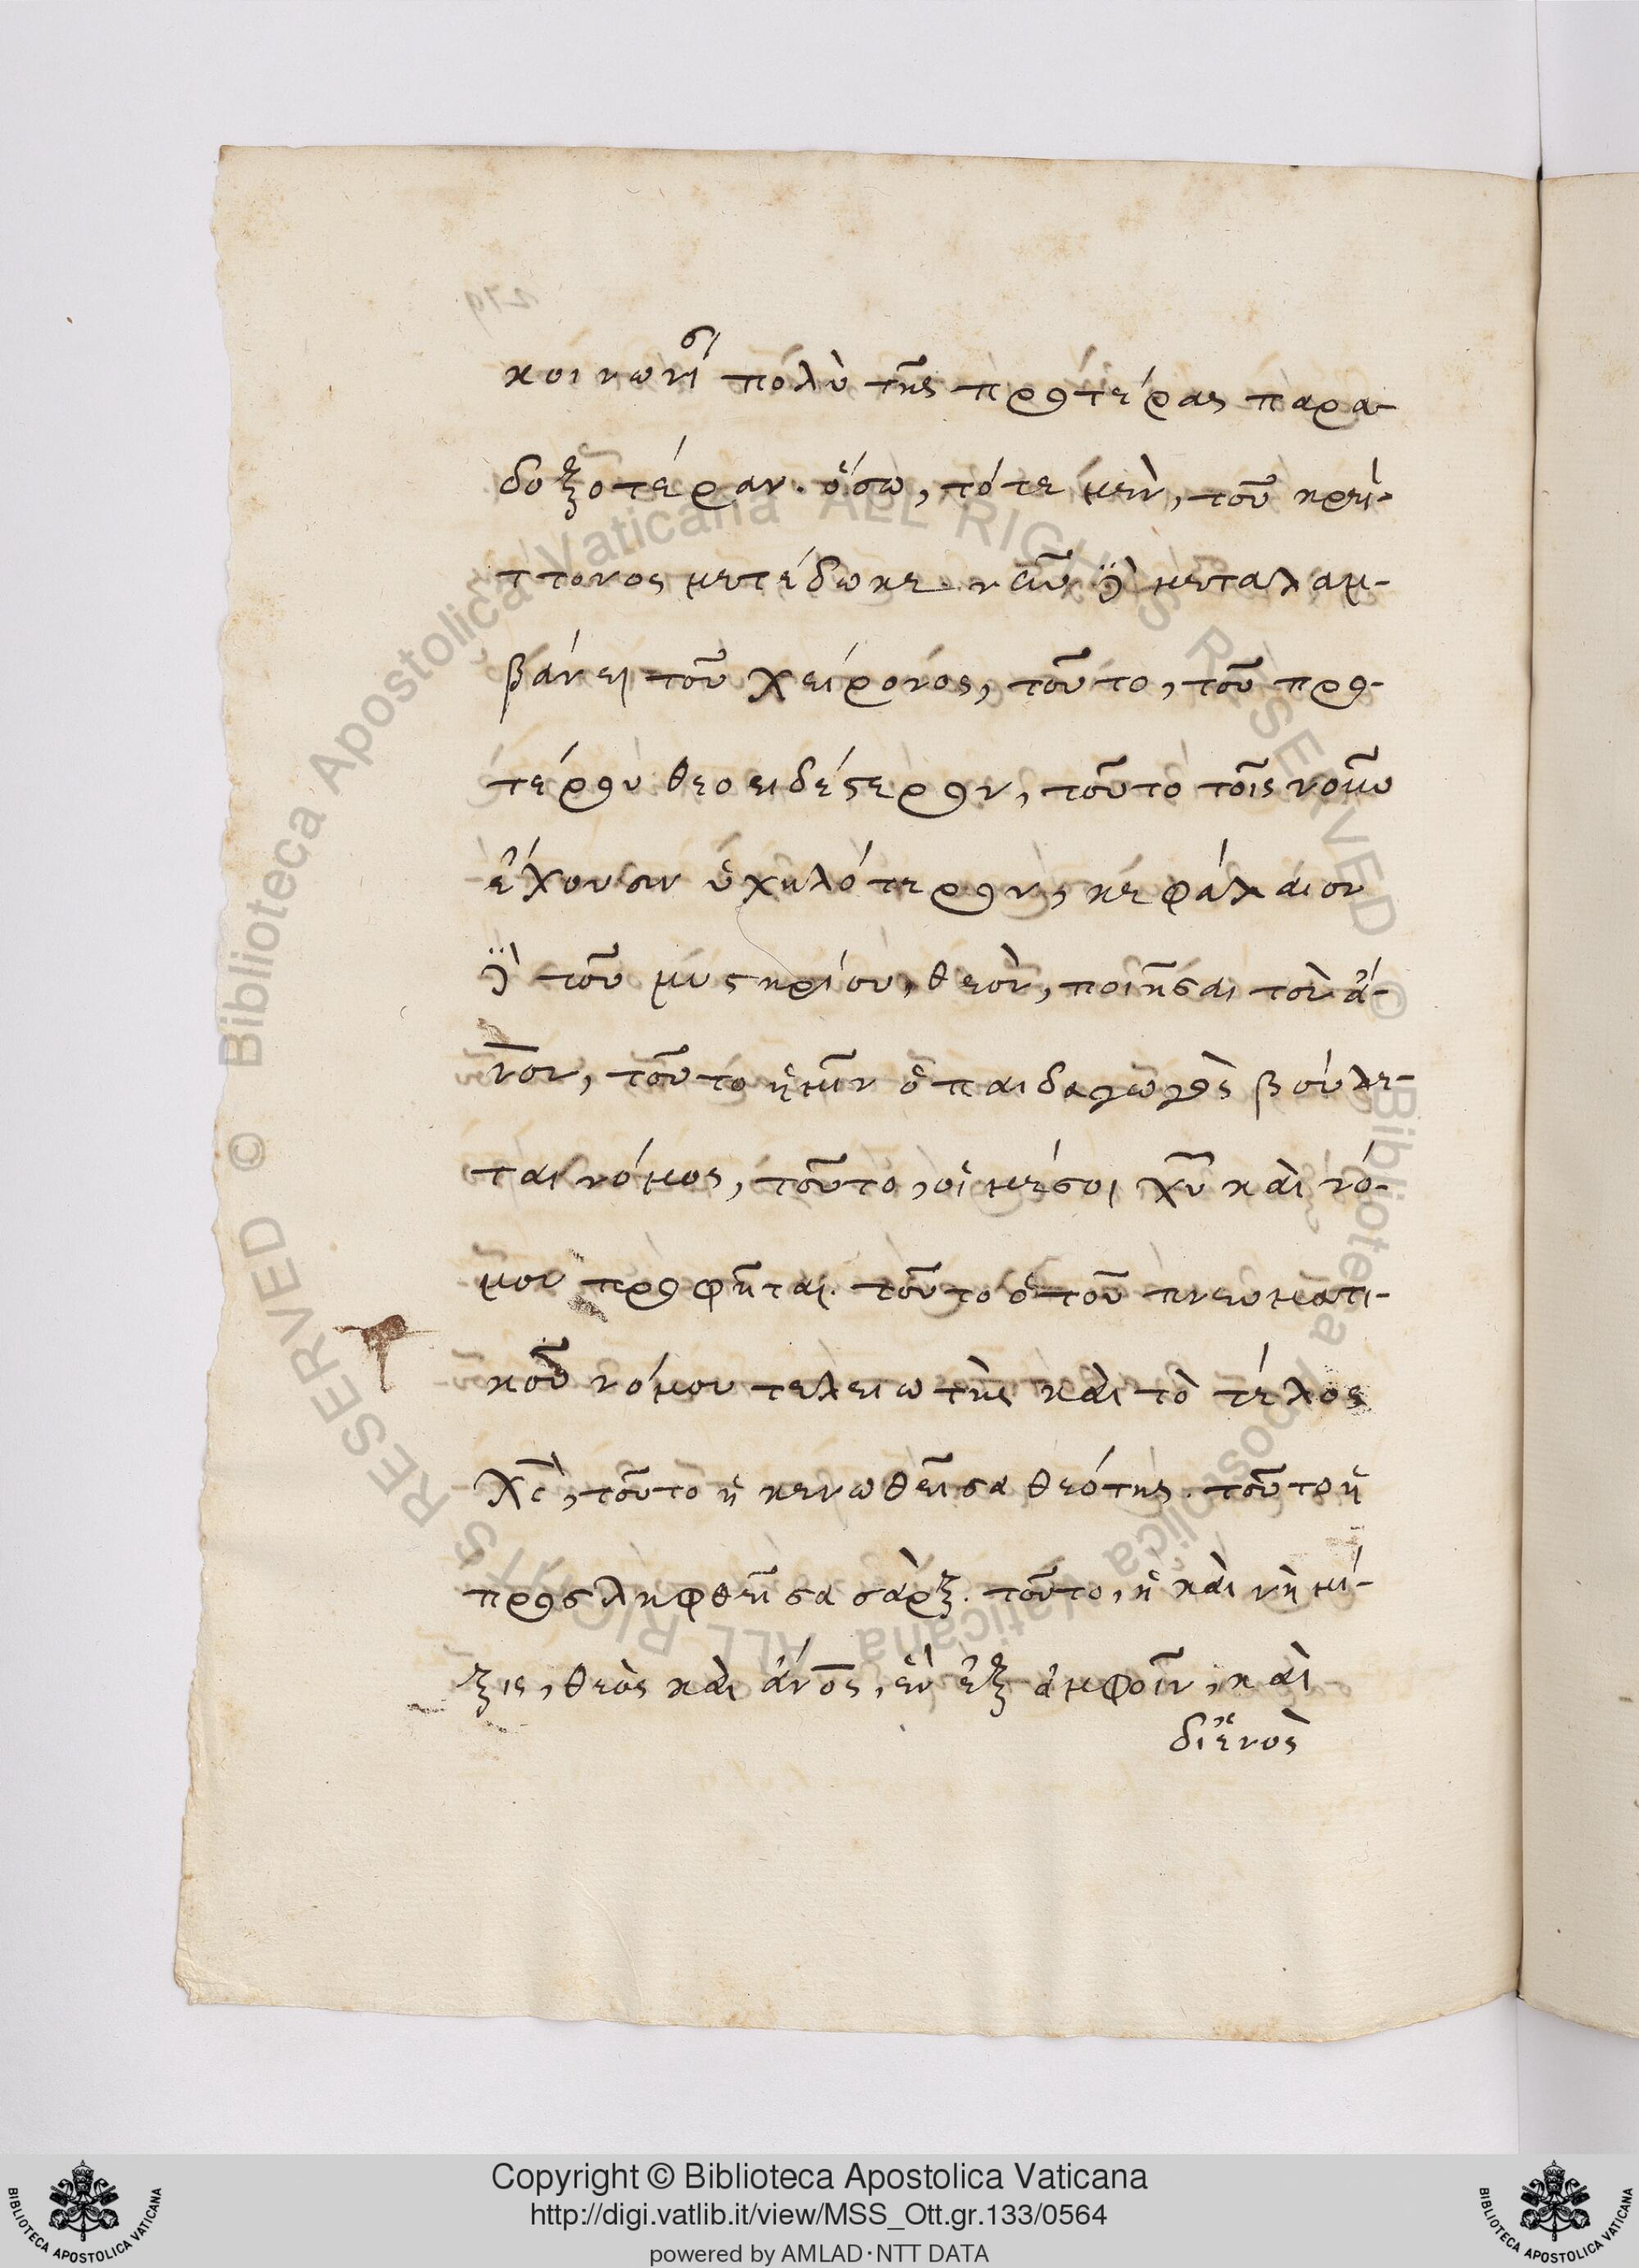 κοινωνεῖ πολὺ τῆς προτέρας παρα-
δοξοτέραν. ὅσω, τότε μὲν, τοῦ κρεί-
ττονος μετέδωκε. νῦν δὲ μεταλαμ-
βάνει τοῦ χείρονος, τοῦτο, τοῦ προ-
τέρου θεοειδέστερον, τοῦτο τοῖς νοῦν
ἔχουσιν ὑψηλότερον, κεφάλαιον
δὲ τοῦ μυστηρίου, θεὸν, ποιῆσαι τὸν ἄ-
νον, τοῦτο ἡμῖν ὁ παιδαγωγὸς βούλε-
ται νόμος, τοῦτο, οἱ μέσοι χυ καὶ νό-
μου προφῆται. τοῦτο ὁ τοῦ πνευματι-
κοῦ νόμου τελειωτὴς καὶ τὸ τέλος
Χς, τοῦτο ἡ κενωθεῖσα θεότης. τοῦτο ἡ
προσληφθεῖσα σὰρξ. τοῦτο, ἡ καινὴ μί-
ξις, θεὸς καὶ ἄνος, ἓν ἐξ ἀμφοῖν, καὶ
δι' ἑνὸς
Copyright © Biblioteca Apostolica Vaticana
http://digi.vatlib.it/view/MSS_Ott.gr.133/0564
powered by AMLAD·NTT DATA
BIBLIOTECA APOSTOLICA VATICANA
BIBLIOTECA APOSTOLICA VATICANA
© Biblioteca Apostolica Vaticana ALL RIGHTS RESERVED © Biblioteca Apostolica Vaticana ALL RIGHTS RESERVED